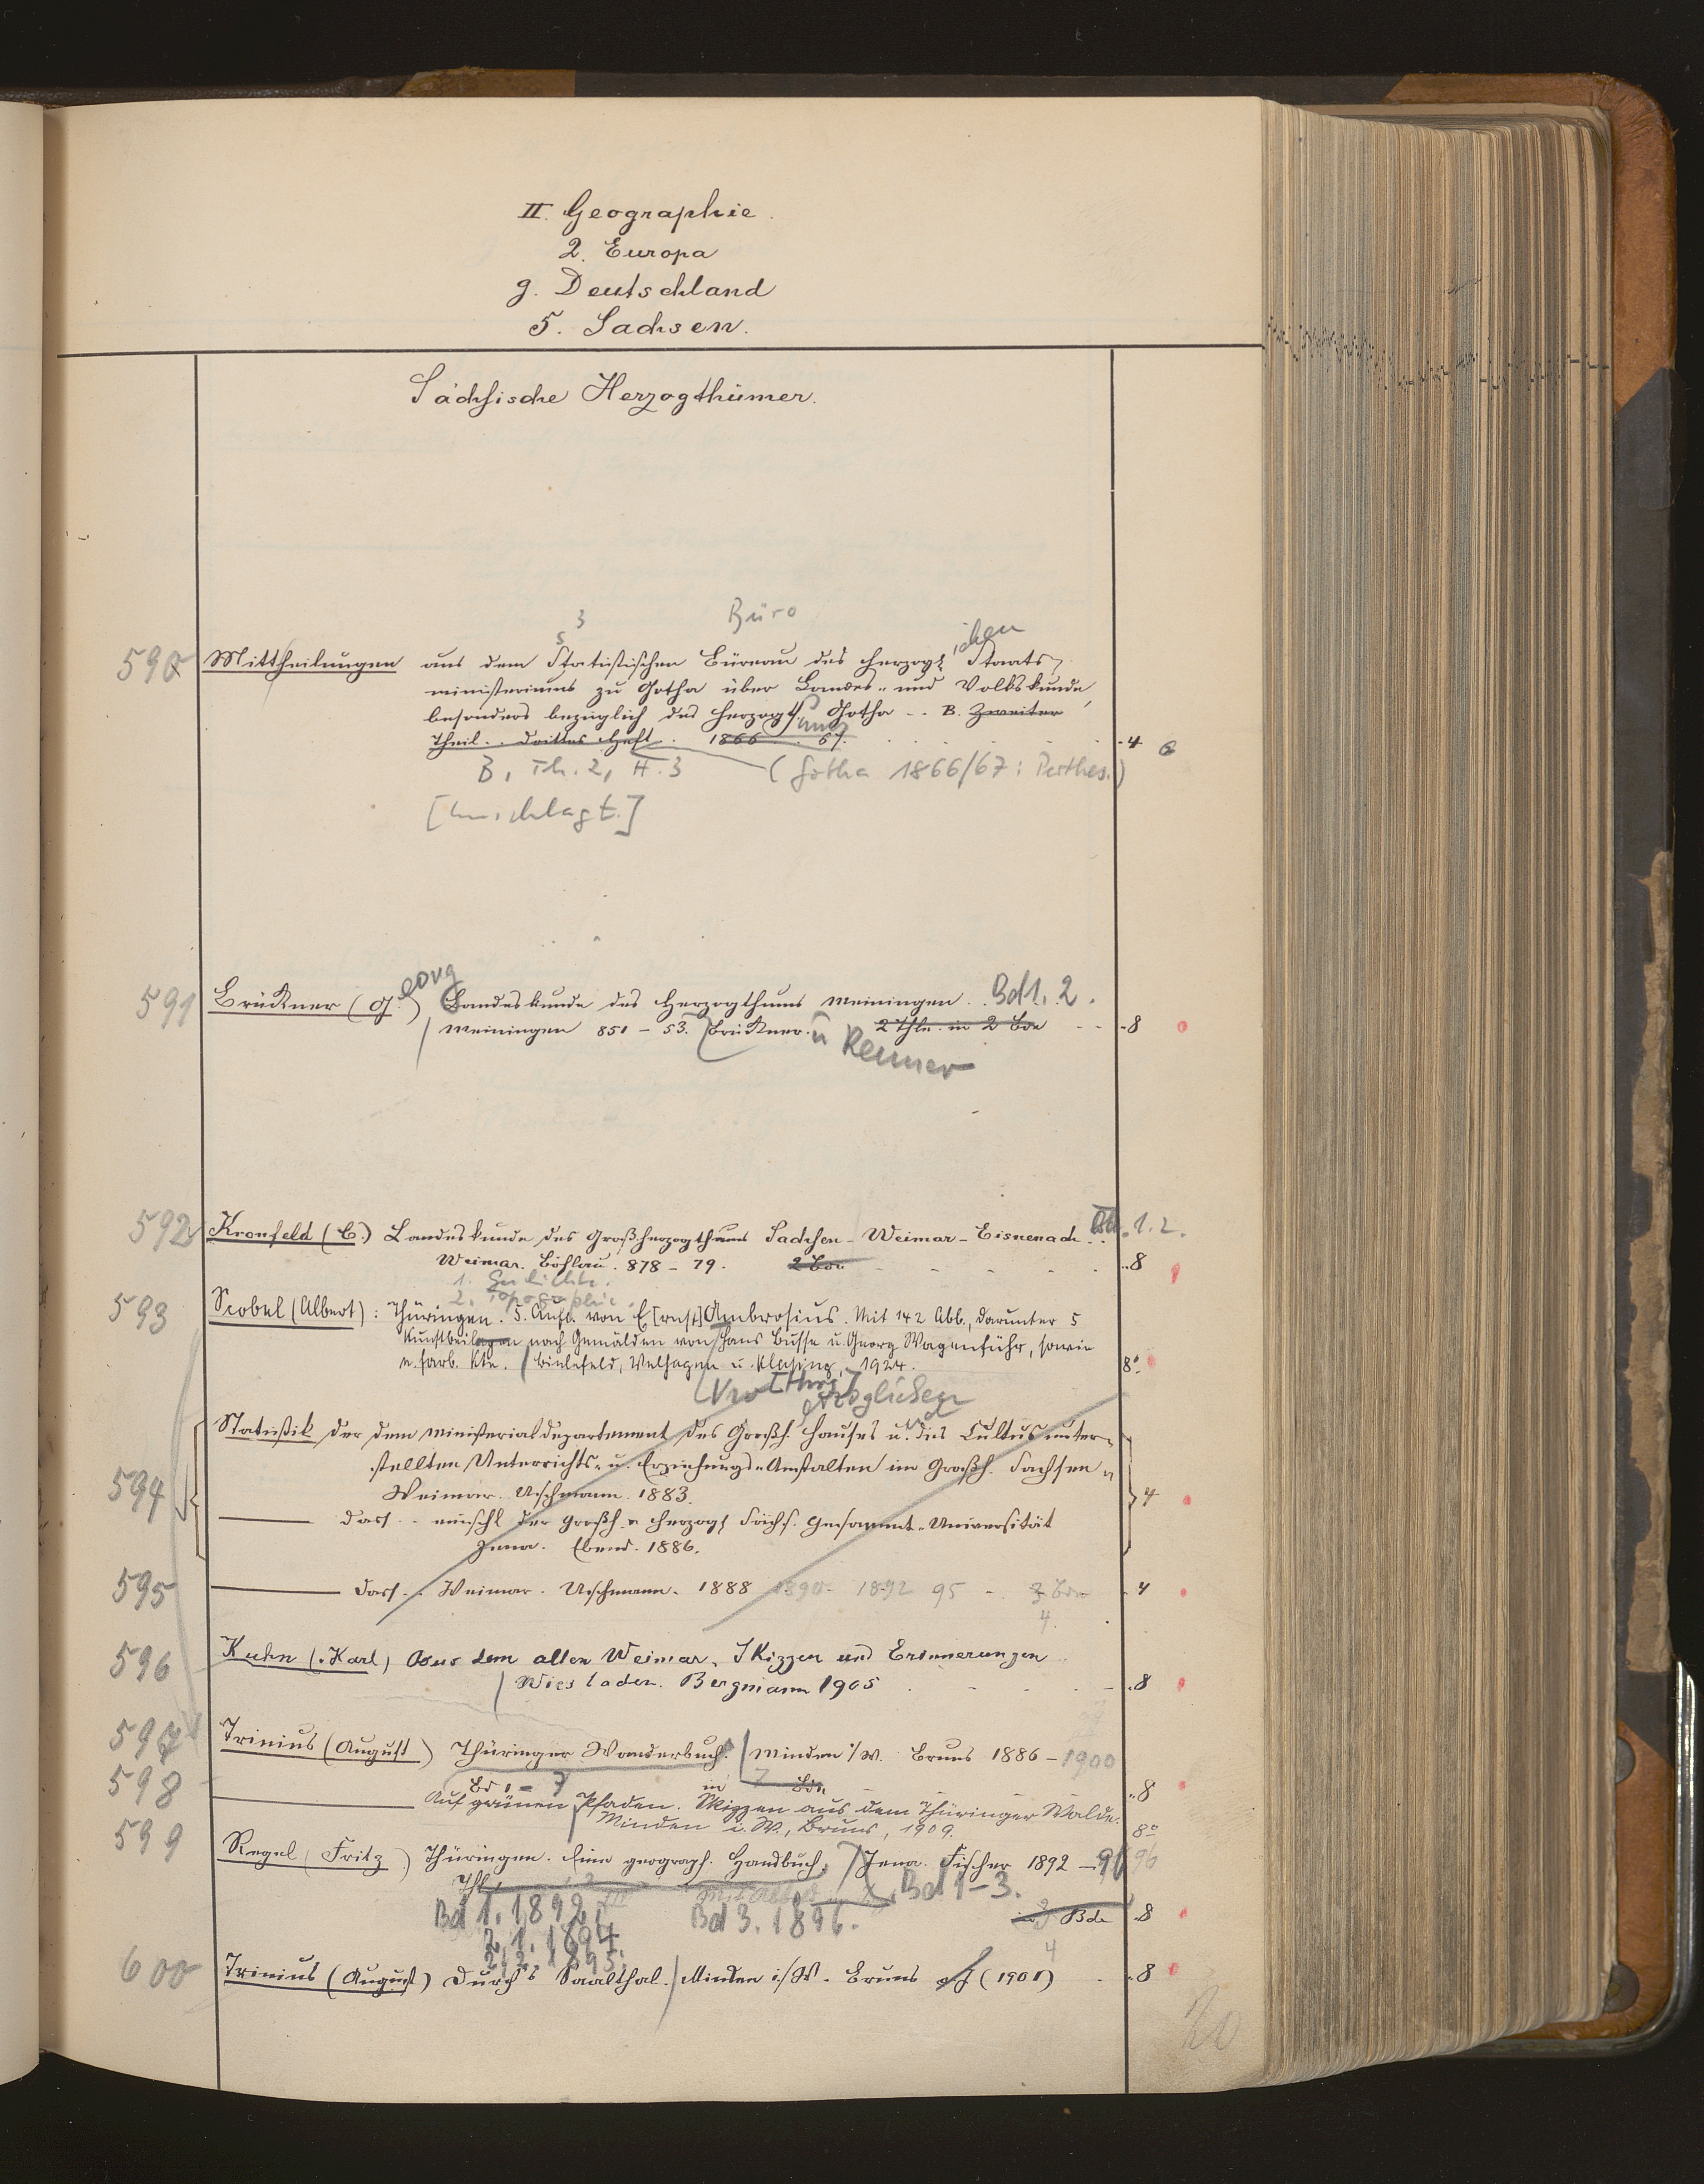 II. Geographie.
2. Europa
g. Deutschland
5. Sachsen.
Sächsische Herzogthümer.
3
s
Büro
ichen
590 Mittheilungen aus dem Statistischen Büreau des herzogl. Staats-
ministeriums zu Gotha über Landes- und Volkskunde,
besonders bezüglich des Herzogth. Gotha - . B. Zweiter
Theil. . Drittes Heft. 1866 . 67. 4
B, Th. 2, H. 3 (Gotha 1866/67: Perthes.)
[Umschlagt.]
eorg
591 Brückner (G.) Landeskunde des Herzogthums Meiningen. Bd 1. 2.
Meiningen 851 - 53. Brückner. 2 Thle. in 2 Bde - 8
u Renner
592 Kronfeld (C.) Landeskunde des Großherzogthums Sachsen-Weimar-Eisenach. 1. 2.
Weimar. Böhlau. 878 - 79. 2 Bde 8
1. Geschichte.
2. Topographie.
593 Scobel (Albert): Thüringen. 5. Aufl. von E[rnst] Ambrosius. Mit 142 Abb., darunter 5
Kunstbeilagen nach Gemälden von Hans Busse u. Georg Wagenführ, sowie
e. farb. Kte. Bielefeld, Velhagen u. Klasing, 1924. 8°
erzoglichen
Statistik der dem Ministerialdepartement des Großh. Hauses u. des Cultus unter-
594 stellten Unterrichts- u. Erziehungs-Anstalten im Großh. Sachsen-
Weimar. Uschmann. 1883. 4
— Dass. - einschl der Großh. u herzogl Sächs. Gesammt-Universität
Jena. Ebend. 1886.
595 — Dass. - Weimar. Uschmann. 1888 1890. 1892 95 - 3 Bde 4
4
596 Kuhn (Karl) Aus dem alten Weimar, Skizzen und Erinnerungen
Wiesbaden. Bergmann 1905 8
597 Trinius (August) Thüringer Wanderbuch. Minden i/W. Bruns 1886 - 1900
Bd 1 - 7 in 7 Bde. 8
598 — Auf grünen Pfaden. Skizzen aus dem Thüringer Walde.
Minden i. W., Bruns, 1909. 8°
599 Regel (Fritz) Thüringen. Eine geograph. Handbuch. Jena. Fischer 1892 - 96 96
Thl Bd 1-3.
Bd 1. 1892, Bd 3. 1896. in 3 Bde 8
2,1. 1894
2,2. 1895. 4
600 Trinius (August) Durch's Saalthal. Minden i/W. Bruns (1901) 8
20